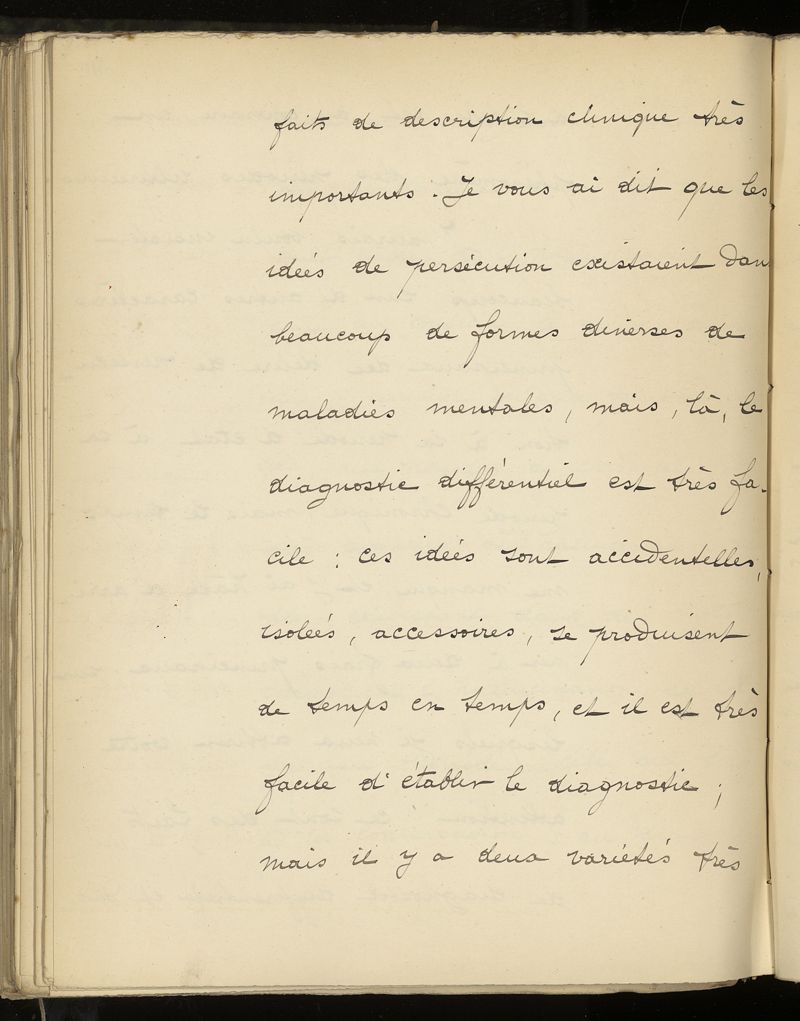 faits de description clinique très
importants. Je vous ai dit que les
idées de persécution existaient dan
beaucoup de formes diverses de
maladies mentales, mais, là, le
diagnostic différentiel est très fa-
cile : ces idées sont accidentelles,
isolées, accessoires, se produisent
de temps en temps, et il est très
facile d'établir le diagnostic ;
mais il y a deux variétés très